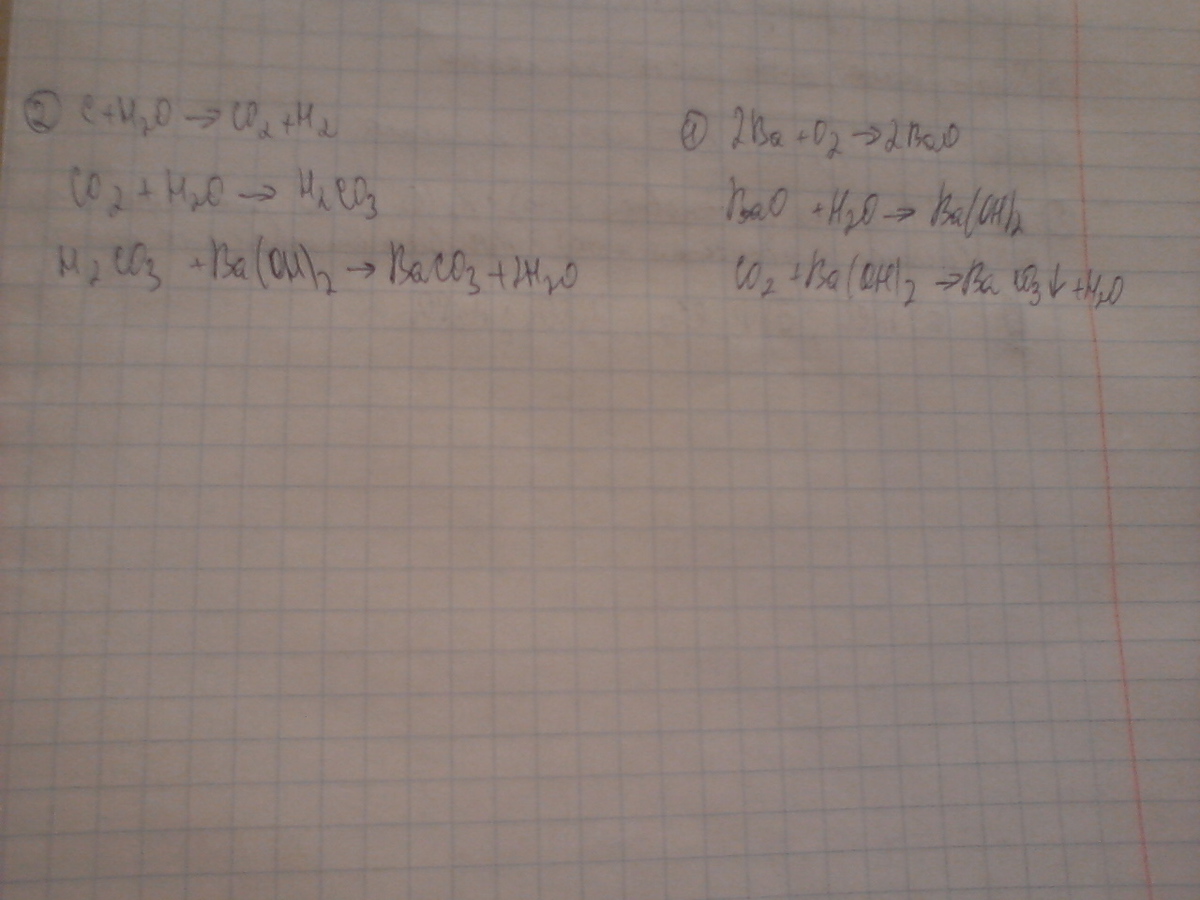 ② C + H₂O → CO₂ + H₂
CO₂ + H₂O → H₂CO₃
H₂CO₃ + Ba(OH)₂ → BaCO₃ + 2H₂O
① 2Ba + O₂ → 2BaO
BaO + H₂O → Ba(OH)₂
CO₂ + Ba(OH)₂ → BaCO₃↓ + H₂O